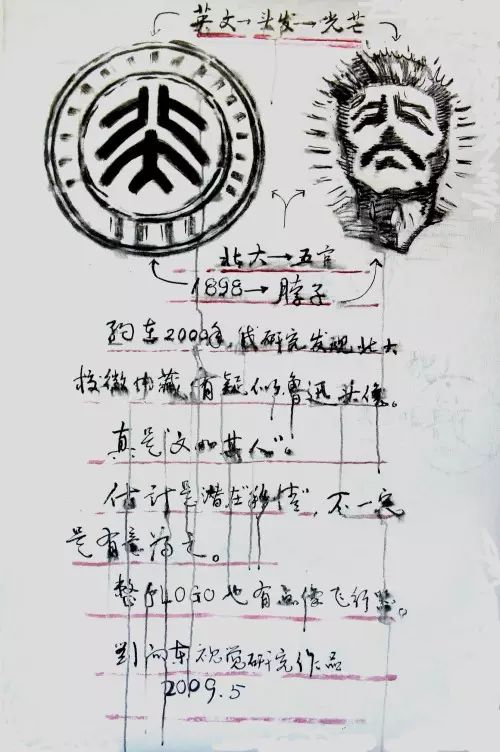 英文→头发→光芒
北大→五官
1898→脖子
约在2009年，我研究发现北大
校徽中藏有疑似鲁迅头像。
真是“文如其人”。
估计是潜在“移情”，不一定
是有意为之。
整个LOGO也有点像飞行器。
刘向东视觉研究作品
2009.5